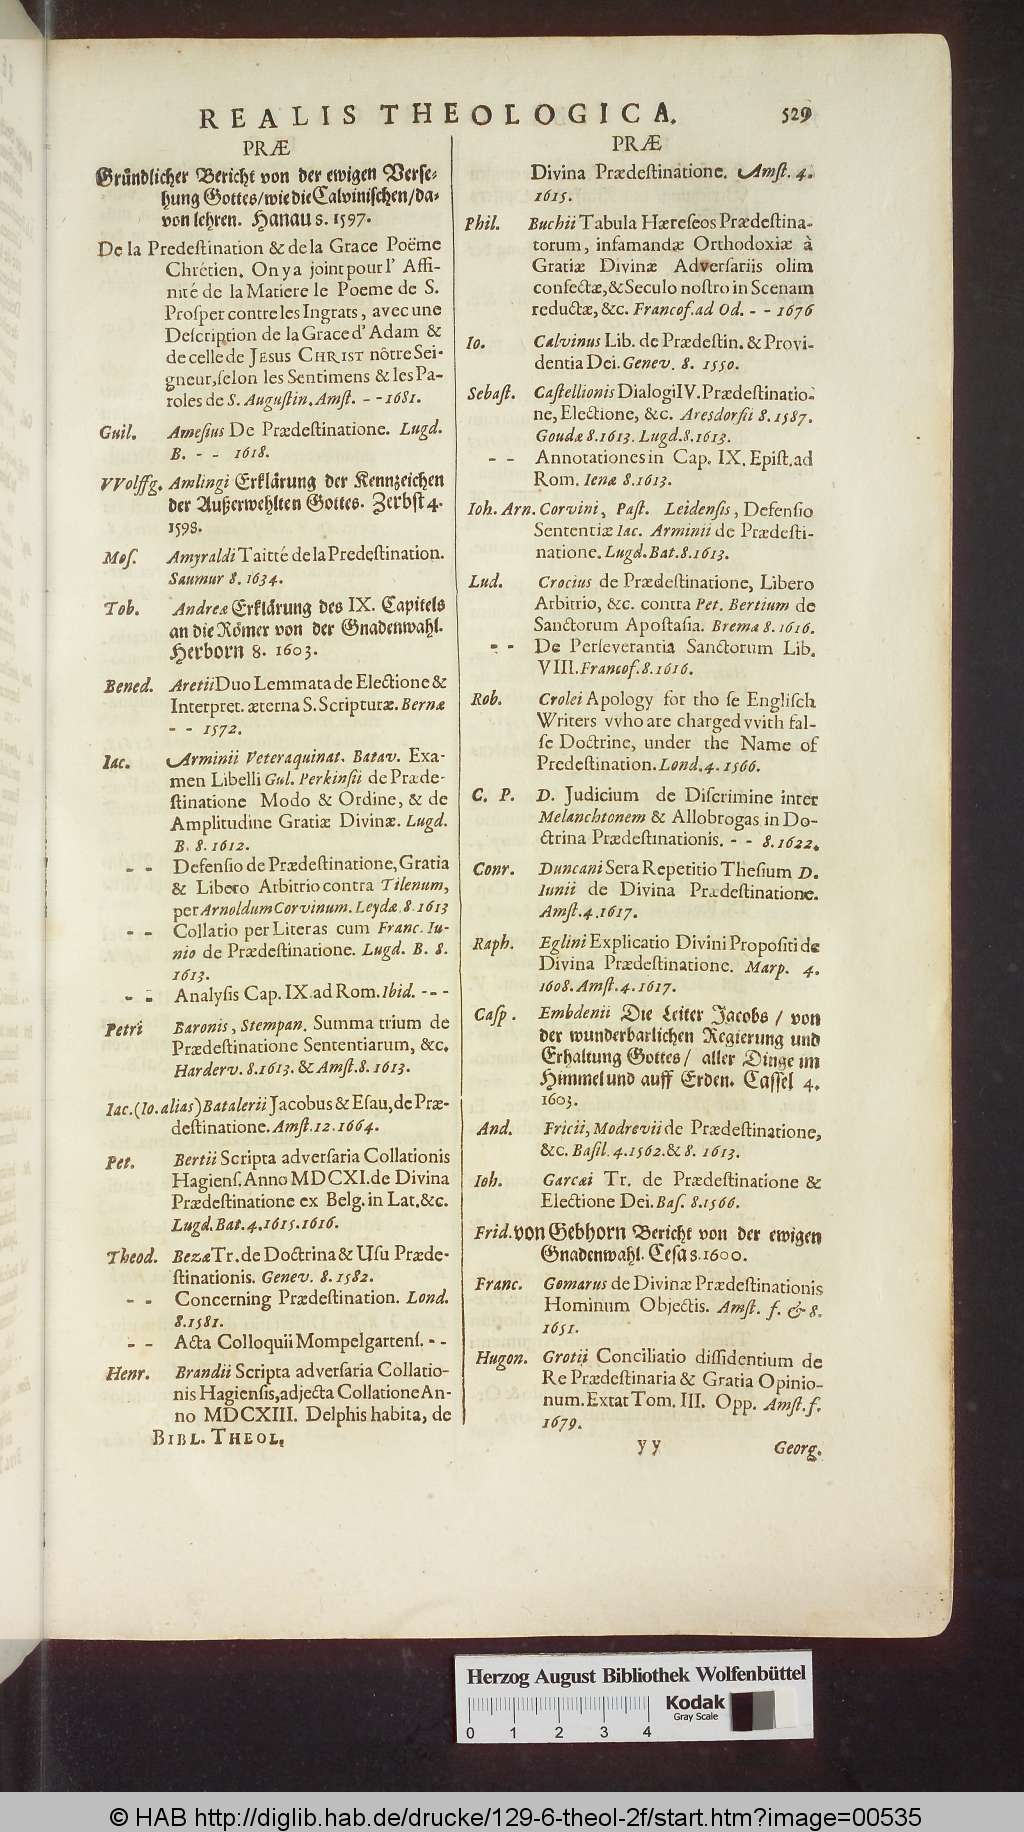 REALIS THEOLOGICA. 529
PRÆ
Gründlicher Bericht von der ewigen Verse-
hung Gottes/wie die Calvinischen/da-
von lehren. Hanau 8. 1597.
De la Predeſtination & de la Grace Poëme
Chrétien. On y a joint pour l' Affi-
nité de la Matiere le Poeme de S.
Proſper contre les Ingrats, avec une
Deſcription de la Grace d' Adam &
de celle de JESUS CHRIST nôtre Sei-
gneur, ſelon les Sentimens & les Pa-
roles de S. Auguſtin. Amſt. - - 1681.
Guil. Ameſius De Prædeſtinatione. Lugd.
B. - - 1618.
VVolffg. Amlingi Erklärung der Kennzeichen
der Außerwehlten Gottes. Zerbſt 4.
1598.
Moſ. Amyraldi Taitté de la Predeſtination.
Saumur 8. 1634.
Tob. Andreæ Erklärung des IX. Capitels
an die Römer von der Gnadenwahl.
Herborn 8. 1603.
Bened. Aretii Duo Lemmata de Electione &
Interpret. æterna S. Scripturæ. Bernæ
- - 1572.
Iac. Arminii Veteraquinat. Batav. Exa-
men Libelli Gul. Perkinſii de Præde-
ſtinatione Modo & Ordine, & de
Amplitudine Gratiæ Divinæ. Lugd.
B. 8. 1612.
- - Defenſio de Prædeſtinatione, Gratia
& Libero Arbitrio contra Tilenum,
per Arnoldum Corvinum. Leydæ 8. 1613
- - Collatio per Literas cum Franc. Iu-
nio de Prædeſtinatione. Lugd. B. 8.
1613.
- - Analyſis Cap. IX. ad Rom. Ibid. - - -
Petri Baronis, Stempan. Summa trium de
Prædeſtinatione Sententiarum, &c.
Harderv. 8. 1613. & Amſt. 8. 1613.
Iac. (Io. alias) Batalerii Jacobus & Eſau, de Præ-
deſtinatione. Amſt. 12. 1664.
Pet. Bertii Scripta adverſaria Collationis
Hagienſ. Anno MDCXI. de Divina
Prædeſtinatione ex Belg. in Lat. &c.
Lugd. Bat. 4. 1615. 1616.
Theod. Bezæ Tr. de Doctrina & Uſu Præde-
ſtinationis. Genev. 8. 1582.
- - Concerning Prædeſtination. Lond.
8. 1581.
- - Acta Colloquii Mompelgartenſ. - -
Henr. Brandii Scripta adverſaria Collatio-
nis Hagienſis, adjecta Collatione An-
no MDCXIII. Delphis habita, de
BIBL. THEOL.
PRÆ
Divina Prædeſtinatione. Amſt. 4.
1615.
Phil. Buchii Tabula Hæreſeos Prædeſtina-
torum, infamandæ Orthodoxiæ à
Gratiæ Divinæ Adverſariis olim
confectæ, & Seculo noſtro in Scenam
reductæ, &c. Francof. ad Od. - - 1676
Io. Calvinus Lib. de Prædeſtin. & Provi-
dentia Dei. Genev. 8. 1550.
Sebaſt. Caſtellionis Dialogi IV. Prædeſtinatio-
ne, Electione, &c. Aresdorfii 8. 1587.
Goudæ 8. 1613. Lugd. 8. 1613.
- - Annotationes in Cap. IX. Epiſt. ad
Rom. Ienæ 8. 1613.
Ioh. Arn. Corvini, Paſt. Leidenſis, Defenſio
Sententiæ Iac. Arminii de Prædeſti-
natione. Lugd. Bat. 8. 1613.
Lud. Crocius de Prædeſtinatione, Libero
Arbitrio, &c. contra Pet. Bertium de
Sanctorum Apoſtaſia. Bremæ 8. 1616.
- - De Perſeverantia Sanctorum Lib.
VIII. Francof. 8. 1616.
Rob. Crolei Apology for tho ſe Engliſch
Writers vvho are charged vvith fal-
ſe Doctrine, under the Name of
Predeſtination. Lond. 4. 1566.
C. P. D. Judicium de Diſcrimine inter
Melanchtonem & Allobrogas in Do-
ctrina Prædeſtinationis. - - 8. 1622.
Conr. Duncani Sera Repetitio Theſium D.
Iunii de Divina Prædeſtinatione.
Amſt. 4. 1617.
Raph. Eglini Explicatio Divini Propoſiti de
Divina Prædeſtinatione. Marp. 4.
1608. Amſt. 4. 1617.
Caſp. Embdenii Die Leiter Jacobs / von
der wunderbarlichen Regierung und
Erhaltung Gottes / aller Dinge im
Himmel und auff Erden. Caſſel 4.
1603.
And. Fricii, Modrevii de Prædeſtinatione,
&c. Baſil. 4. 1562. & 8. 1613.
Ioh. Garcæi Tr. de Prædeſtinatione &
Electione Dei. Baſ. 8. 1566.
Frid. von Gebhorn Bericht von der ewigen
Gnadenwahl. Ceſa 8. 1600.
Franc. Gomarus de Divinæ Prædeſtinationis
Hominum Objectis. Amſt. f. & 8.
1651.
Hugon. Grotii Conciliatio diſſidentium de
Re Prædeſtinaria & Gratia Opinio-
num. Extat Tom. III. Opp. Amſt. f.
1679.
yy Georg.
Herzog August Bibliothek Wolfenbüttel
Kodak
Gray Scale
0 1 2 3 4
© HAB http://diglib.hab.de/drucke/129-6-theol-2f/start.htm?image=00535